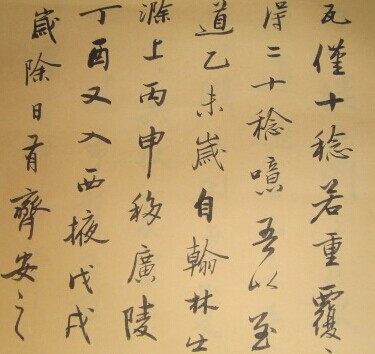 瓦僅十稔若重覆
得二十稔噫吾以至
道乙未歲自翰林出
滁上丙申移廣陵
丁酉又入西掖戊戌
歲除日有齊安之